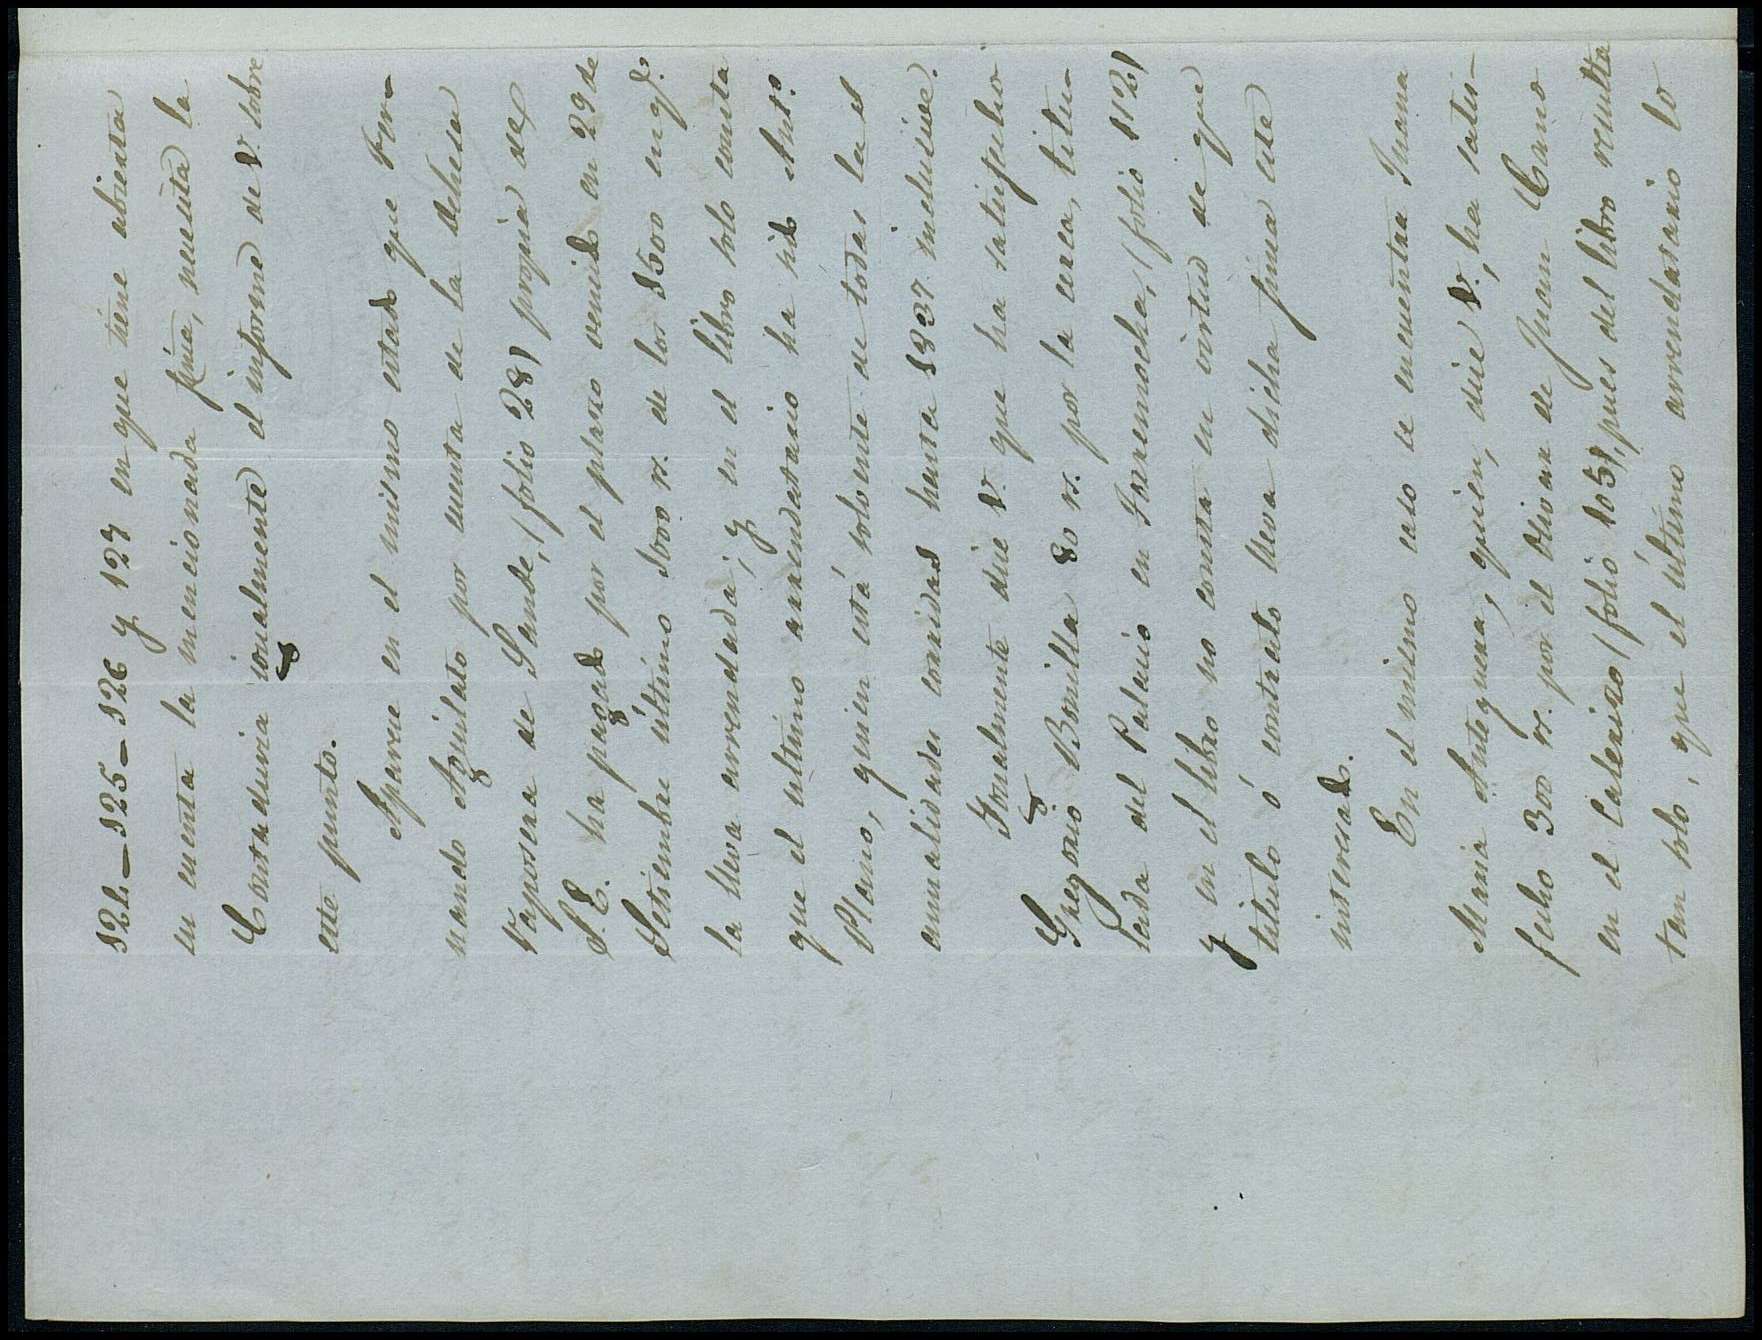 124_125_126 y 127 en que tiene abierta
en cuenta la mencionada finca, necesita la
Contaduria igualmente el informe de V. sobre
este punto.
Aparece en el mismo estado que Fer_
nando Aguilato por cuenta de la dehesa
Raposera de Sande, (folio 28) propia de
S.E. ha pagado por el plazo vencido en 29 de
Setiembre último 3000 rs. de los 1500 en qe.
la lleva arrendada; y en el libro solo consta
que el último arrendatario ha sido Anto.
Plano, quien está solvente de todas las
anualidades corridas hasta 1837 inclusive.
Igualmente dice V. que ha satisfecho
Gregorio Bonilla 80 rs. por la cerca, titu_
lada del Palacio en Torremocha, (folio 112)
y en el libro no consta en virtud de que
titulo ó contrato lleva dicha finca este
interesado.
En el mismo caso se encuentra Juana
Maria Antequera, quien, dice V., ha satis_
fecho 300 rs. por el olivar de Juan Cano
en el Calerizo (folio 105), pues del libro resulta
tan solo, que el último arrendatario lo